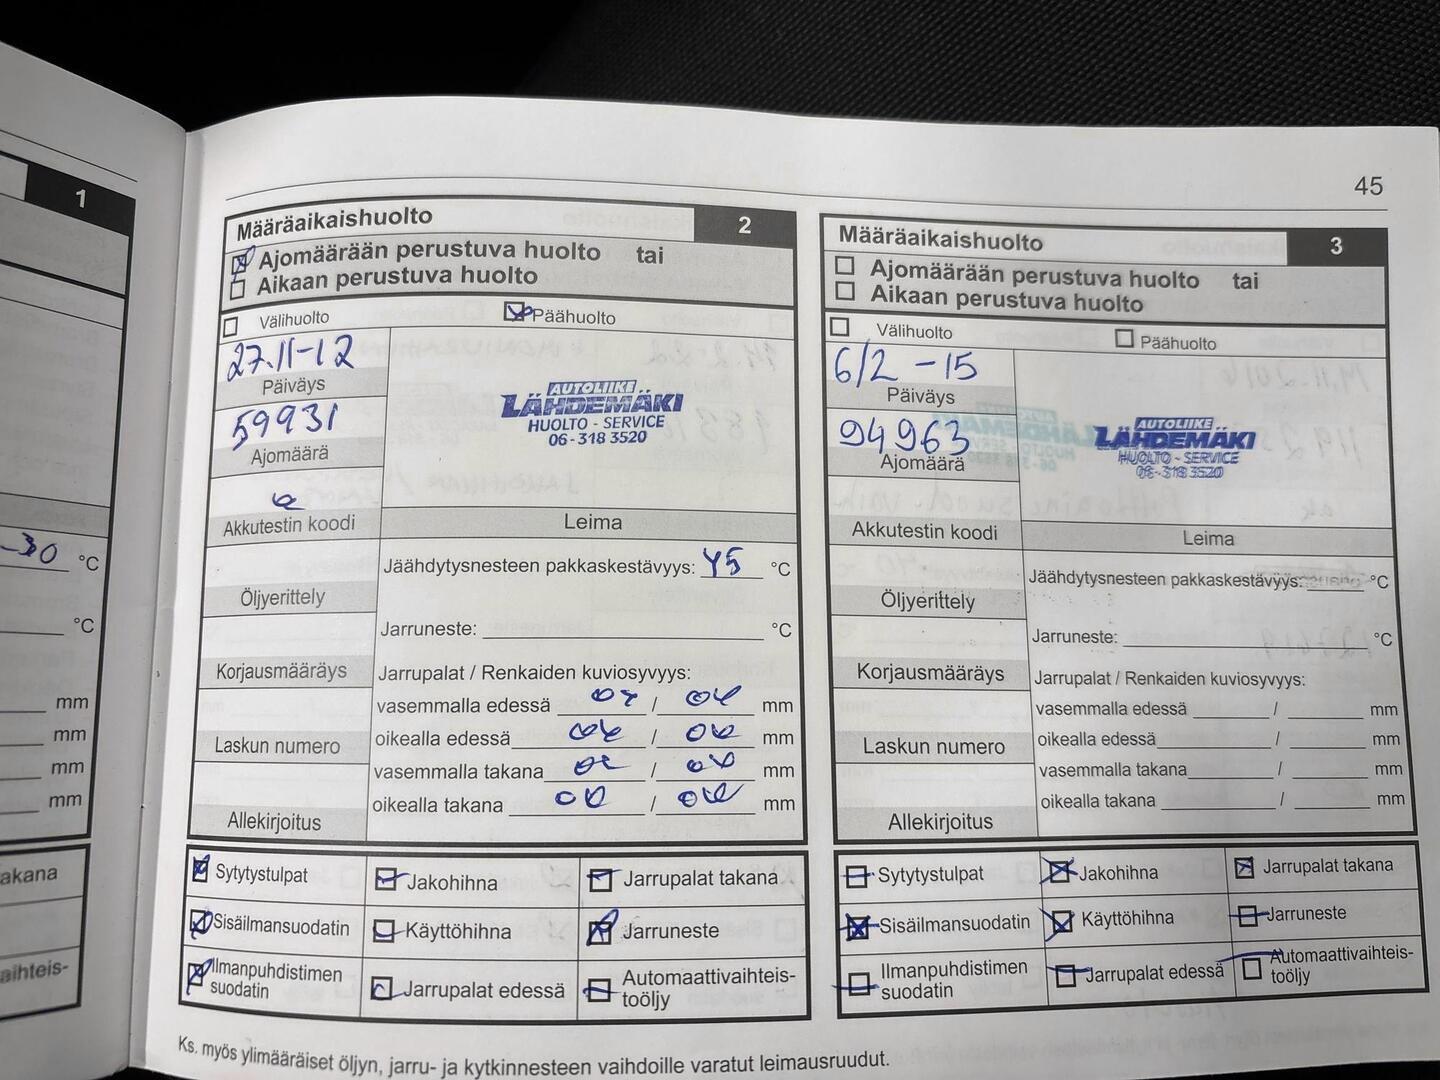 45
1
-30 °C
°C
mm
mm
mm
mm
akana
aihteis-
Määräaikaishuolto 2
Ajomäärään perustuva huolto tai
Aikaan perustuva huolto
Välihuolto Päähuolto
27.11-12
Päiväys
59931
Ajomäärä
AUTOLIIKE
LÄHDEMÄKI
HUOLTO - SERVICE
06-318 3520
Akkutestin koodi
Leima
Öljyerittely
Korjausmääräys
Laskun numero
Allekirjoitus
Jäähdytysnesteen pakkaskestävyys: 45 °C
Jarruneste: °C
Jarrupalat / Renkaiden kuviosyvyys:
vasemmalla edessä ok / ok mm
oikealla edessä ok / ok mm
vasemmalla takana ok / ok mm
oikealla takana ok / ok mm
Sytytystulpat Jakohihna Jarrupalat takana
Sisäilmansuodatin Käyttöhihna Jarruneste
Ilmanpuhdistimen
suodatin
Jarrupalat edessä
Automaattivaihteis-
toöljy
Määräaikaishuolto 3
Ajomäärään perustuva huolto tai
Aikaan perustuva huolto
Välihuolto Päähuolto
6/2 -15
Päiväys
94963
Ajomäärä
AUTOLIIKE
LÄHDEMÄKI
HUOLTO - SERVICE
06-318 3520
Akkutestin koodi
Leima
Öljyerittely
Korjausmääräys
Laskun numero
Allekirjoitus
Jäähdytysnesteen pakkaskestävyys: °C
Jarruneste: °C
Jarrupalat / Renkaiden kuviosyvyys:
vasemmalla edessä / mm
oikealla edessä / mm
vasemmalla takana / mm
oikealla takana / mm
Sytytystulpat Jakohihna Jarrupalat takana
Sisäilmansuodatin Käyttöhihna Jarruneste
Ilmanpuhdistimen
suodatin
Jarrupalat edessä
Automaattivaihteis-
toöljy
Ks. myös ylimääräiset öljyn, jarru- ja kytkinnesteen vaihdoille varatut leimausruudut.